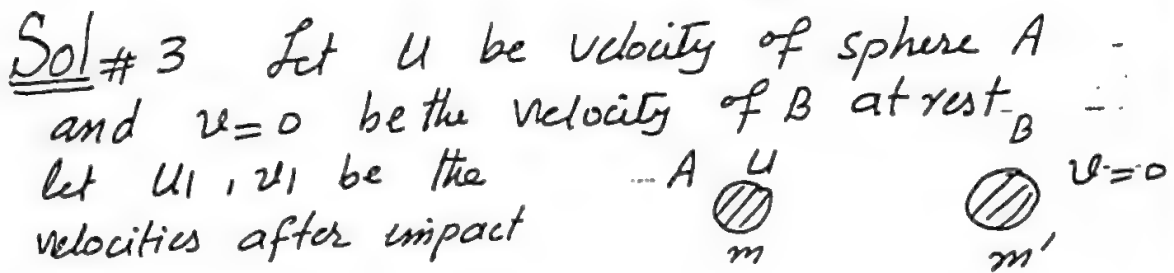 Sol # 3 Let u be velocity of sphere A
and v=0 be the velocity of B at rest
let u₁, v₁ be the
velocities after impact
A u B v=0
m m'